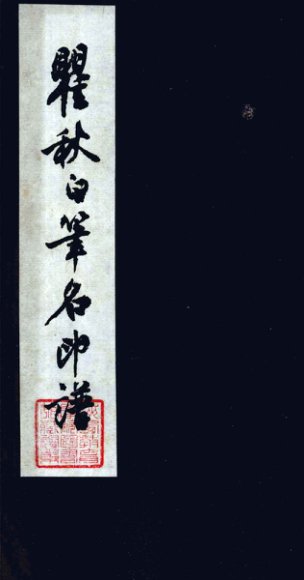 瞿秋白筆名印譜